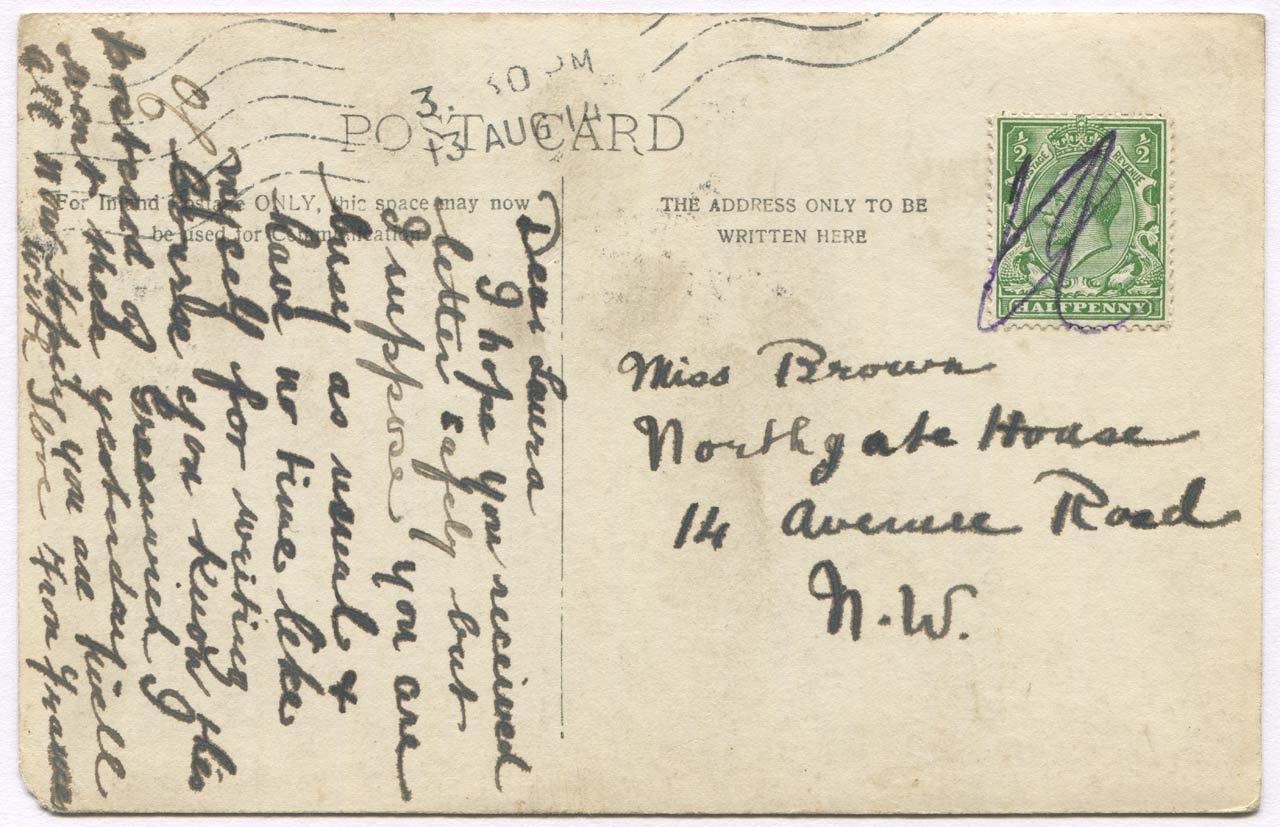 3. 30 PM
13 AUG 14
POST CARD
For Inland Postage ONLY, this space may now
be used for Communication
THE ADDRESS ONLY TO BE
WRITTEN HERE
½ ½
POSTAGE REVENUE
HALFPENNY
Dear Laura
I hope you received
letter safely but
I suppose you are
busy as usual &
have no time like
myself for writing
Of course you know this
postcard of Greenwich I
went there yesterday
all now hoping you
with love from
Miss Brown
Northgate House
14 Avenue Road
N.W.